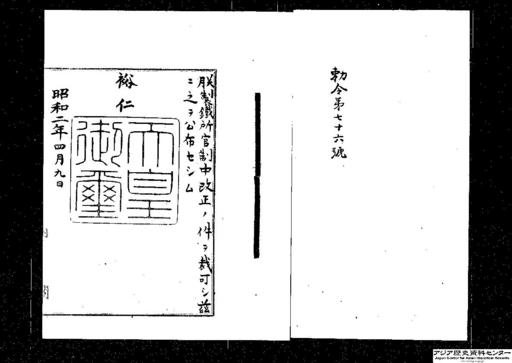 勅令第七十六號
朕製鐵所官制中改正ノ件ヲ裁可シ茲
ニ之ヲ公布セシム
裕仁
天皇
御璽
昭和二年四月九日
内閣
アジア歴史資料センター
Japan Center for Asian Historical Records